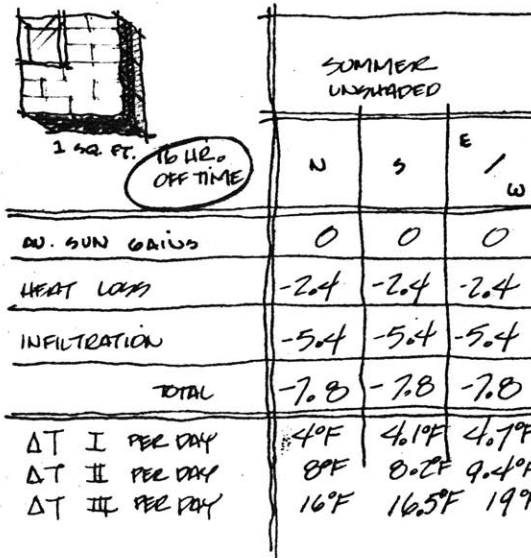 SUMMER
UNSHADED
1 SQ. FT.
16 HR.
OFF TIME
N S E / W
AV. SUN GAINS 0 0 0
HEAT LOSS -2.4 -2.4 -2.4
INFILTRATION -5.4 -5.4 -5.4
TOTAL -7.8 -7.8 -7.8
ΔT I PER DAY 4°F 4.1°F 4.7°F
ΔT II PER DAY 8°F 8.2°F 9.4°F
ΔT III PER DAY 16°F 16.5°F 19°F